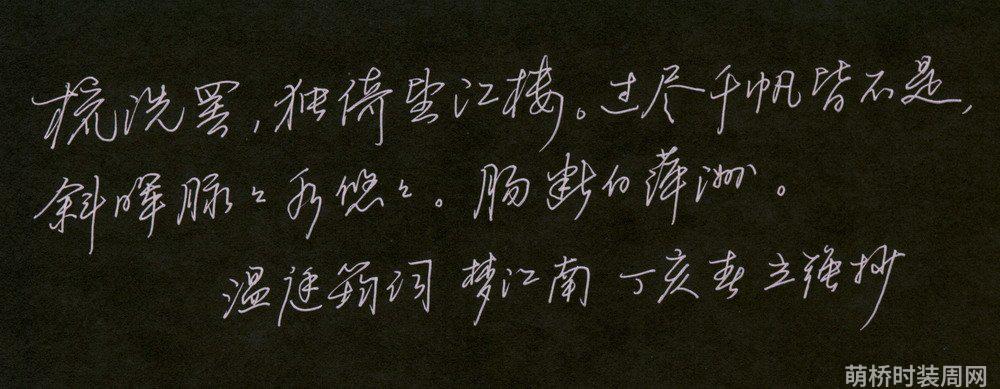 梳洗罢，独倚望江楼。过尽千帆皆不是，
斜晖脉々水悠々。肠断白蘋洲。
温庭筠词 梦江南 丁亥春 立强抄
萌桥时装周网